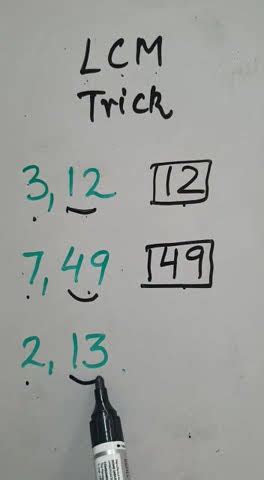 LCM
Trick
3, 12 12
7, 49 49
2, 13